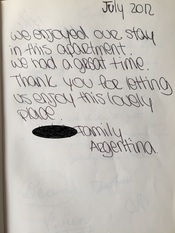 July 2012
we enjoyed our stay
in this apartment.
we had a great time.
Thank you for letting
us enjoy this lovely
place
Family
Argentina